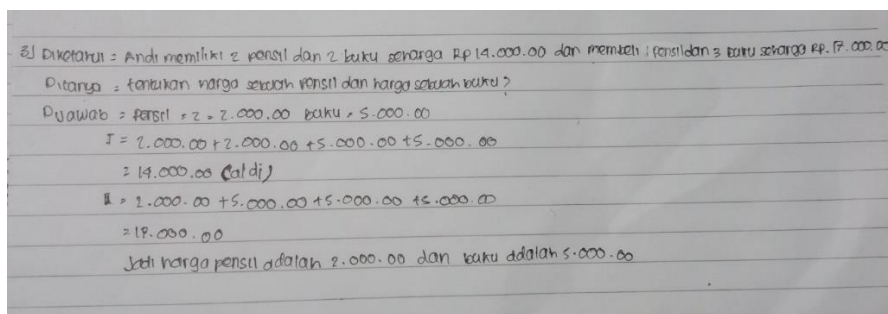 3) Diketahui = Andi memiliki 2 pensil dan 2 buku seharga Rp 14.000.00 dan membeli 1 pensil dan 3 buku seharga Rp. 17.000.00
Ditanya = tentukan harga sebuah pensil dan harga sebuah buku?
Dijawab = pensil = 2 = 2.000.00 buku = 5.000.00
I = 2.000.00 + 2.000.00 + 5.000.00 + 5.000.00
= 14.000.00 (aldi)
II = 2.000.00 + 5.000.00 + 5.000.00 + 5.000.00
= 17.000.00
Jadi harga pensil adalah 2.000.00 dan buku adalah 5.000.00